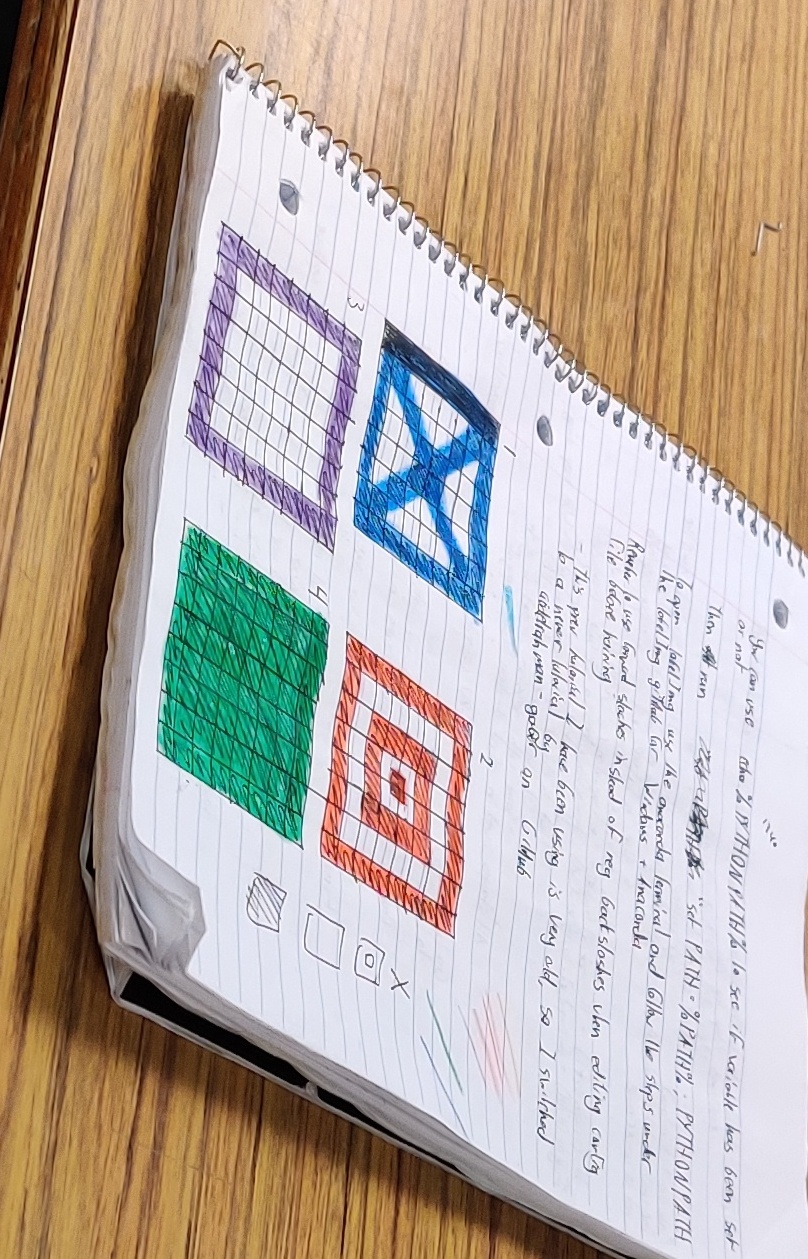 You can use echo %PYTHONPATH% to see if variable has been set
or not
Then run "set PATH=%PATH%;PYTHONPATH
To open labelImg use the anaconda terminal and follow the steps under
the labelImg github for Windows + Anaconda
to use forward slashes instead of reg backslashes when editing config
file before training
- This prev tutorial I have been using is very old, so I switched
to a newer tutorial by
on Github
1
2
3
4
X